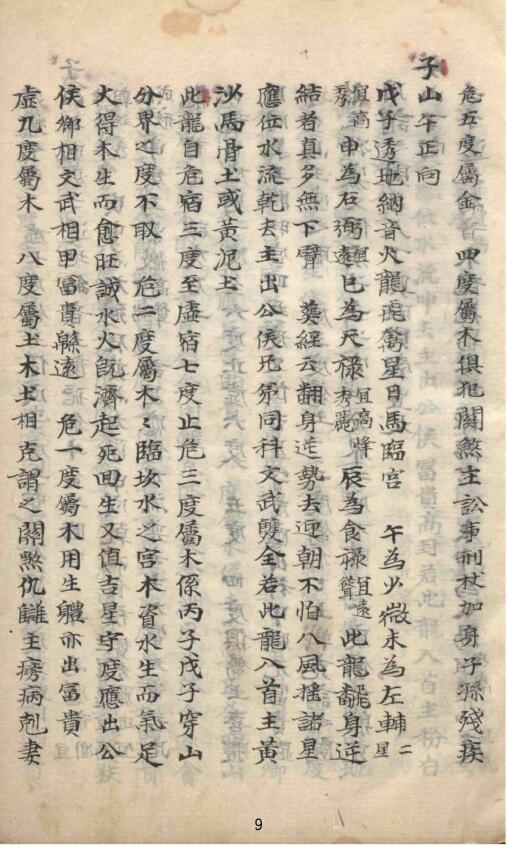 危五度屬金
四度屬木俱犯關煞主訟事刑杖加身子孫殘疾
子山午正向
戊子透地納音火龍虎鴛星日馬臨宮　午為少微未為左輔二星
宜高秀申為右弼宜遠巳為天祿宜高峰秀麗辰為食祿宜遠聳此龍翻身逆
結者真多無下臂　葬經云翻身逆勢去迎朝不怕八風搖諸星
應位水流乾去主出公侯兄弟同科文武雙全若此龍入首主黃
沙馬骨土或黃泥土
此龍自危宿三度至虛宿七度止危三度屬木係丙子戊子穿山
分界之度不取　危二度屬木〻臨坎水之宮木資水生而氣足
火得木生而愈旺誠水火既濟起死回生又值吉星守度應出公
侯鄉相文武相甲富貴綿遠　危一度屬木用生體亦出富貴
虛九度屬木　八度屬土木土相克謂之關煞仇讎主癆病剋妻
9